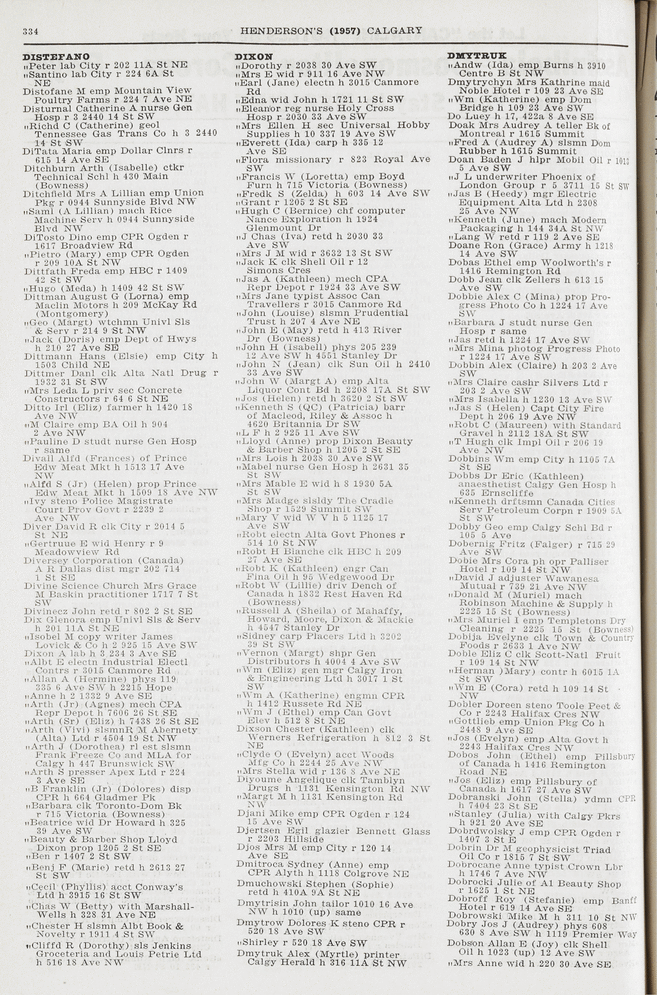 334
HENDERSON'S (1957) CALGARY
DISTEFANO
„Peter lab City r 202 11A St NE
„Santino lab City r 224 6A St
NE
Distofane M emp Mountain View
Poultry Farms r 224 7 Ave NE
Disturnal Catherine A nurse Gen
Hosp r 3 2440 14 St SW
„Richd C (Catherine) geol
Tennessee Gas Trans Co h 3 2440
14 St SW
DiTata Maria emp Dollar Clnrs r
615 14 Ave SE
Ditchburn Arth (Isabelle) ctkr
Technical Schl h 430 Main
(Bowness)
Ditchfield Mrs A Lillian emp Union
Pkg r 0944 Sunnyside Blvd NW
„Saml (A Lillian) mach Rice
Machine Serv h 0944 Sunnyside
Blvd NW
DiTosto Dino emp CPR Ogden r
1617 Broadview Rd
„Pietro (Mary) emp CPR Ogden
r 209 10A St NW
Dittfath Freda emp HBC r 1409
42 St SW
„Hugo (Meda) h 1409 42 St SW
Dittman August G (Lorna) emp
Maclin Motors h 209 McKay Rd
(Montgomery)
„Geo (Margt) wtchmn Univl Sls
& Serv r 214 9 St NW
„Jack (Doris) emp Dept of Hwys
h 210 27 Ave SE
Dittmann Hans (Elsie) emp City h
1503 Child NE
Dittmer Danl clk Alta Natl Drug r
1932 31 St SW
„Mrs Leda L priv sec Concrete
Constructors r 64 6 St NE
Ditto Irl (Eliz) farmer h 1420 18
Ave NW
„M Claire emp BA Oil h 904
2 Ave NW
„Pauline D studt nurse Gen Hosp
r same
Divall Alfd (Frances) of Prince
Edw Meat Mkt h 1513 17 Ave
NW
„Alfd S (Jr) (Helen) prop Prince
Edw Meat Mkt h 1509 18 Ave NW
„Ivy steno Police Magistrate
Court Prov Govt r 2239 2
Ave NW
Diver David R clk City r 2014 5
St NE
„Gertrude E wid Henry r 9
Meadowview Rd
Diversey Corporation (Canada)
A R Dallas dist mgr 202 714
1 St SE
Divine Science Church Mrs Grace
M Baskin practitioner 1717 7 St
SW
Divinecz John retd r 802 2 St SW
Dix Glenora emp Univl Sls & Serv
h 201 11A St NE
„Isobel M copy writer James
Lovick & Co h 2 925 15 Ave SW
Dixon A lab h 3 234 3 Ave SE
„Albt E electn Industrial Electl
Contrs r 3015 Canmore Rd
„Allan A (Hermine) phys 119
335 6 Ave SW h 2215 Hope
„Anne h 2 1332 9 Ave SE
„Arth (Jr) (Agnes) mech CPA
Repr Depot h 7606 26 St SE
„Arth (Sr) (Eliz) h 7438 26 St SE
„Arth (Vivi) slsmnR M Abernety
(Alta) Ltd r 4504 19 St NW
„Arth J (Dorothea) rl est slsmn
Frank Freeze Co and MLA for
Calgy h 447 Brunswick SW
„Arth S presser Apex Ltd r 224
3 Ave SE
„B Franklin (Jr) (Dolores) disp
CPR h 664 Gladmer Pk
„Barbara clk Toronto-Dom Bk
r 715 Victoria (Bowness)
„Beatrice wid Dr Howard h 325
39 Ave SW
„Beauty & Barber Shop Lloyd
Dixon prop 1205 2 St SE
„Ben r 1407 2 St SW
„Benj F (Marie) retd h 2613 27
St SW
„Cecil (Phyllis) acct Conway's
Ltd h 3915 16 St SW
„Chas W (Betty) with Marshall-
Wells h 328 31 Ave NE
„Chester H slsmn Albt Book &
Novelty r 1911 4 St SW
„Cliffd R (Dorothy) sls Jenkins
Groceteria and Louis Petrie Ltd
h 516 18 Ave NW
DIXON
„Dorothy r 2038 30 Ave SW
„Mrs E wid r 911 16 Ave NW
„Earl (Jane) electn h 3015 Canmore
Rd
„Edna wid John h 1721 11 St SW
„Eleanor reg nurse Holy Cross
Hosp r 2030 33 Ave SW
„Mrs Ellen H sec Universal Hobby
Supplies h 10 337 19 Ave SW
„Everett (Ida) carp h 335 12
Ave SE
„Flora missionary r 823 Royal Ave
SW
„Francis W (Loretta) emp Boyd
Furn h 715 Victoria (Bowness)
„Fredk S (Zelda) h 603 14 Ave SW
„Grant r 1205 2 St SE
„Hugh C (Bernice) chf computer
Nance Exploration h 1924
Glenmount Dr
„J Chas (Iva) retd h 2030 33
Ave SW
„Mrs J M wid r 3632 13 St SW
„Jack K clk Shell Oil r 12
Simons Cres
„Jas A (Kathleen) mech CPA
Repr Depot r 1924 33 Ave SW
„Mrs Jane typist Assoc Can
Travellers r 3015 Canmore Rd
„John (Louise) slsmn Prudential
Trust h 207 4 Ave NE
„John E (May) retd h 413 River
Dr (Bowness)
„John H (Isabell) phys 205 239
12 Ave SW h 4551 Stanley Dr
„John N (Jean) clk Sun Oil h 2410
33 Ave SW
„John W (Margt A) emp Alta
Liquor Cont Bd h 2208 17A St SW
„Jos (Helen) retd h 3620 2 St SW
„Kenneth S (QC) (Patricia) barr
of Macleod, Riley & Assoc h
4620 Britannia Dr SW
„L F h 2 925 11 Ave SW
„Lloyd (Anne) prop Dixon Beauty
& Barber Shop h 1205 2 St SE
„Mrs Lois h 2038 30 Ave SW
„Mabel nurse Gen Hosp h 2631 35
St SW
„Mrs Mable E wid h 8 1930 5A
St SW
„Mrs Madge slsldy The Cradle
Shop r 1529 Summit SW
„Mary V wid W V h 5 1125 17
Ave SW
„Robt electn Alta Govt Phones r
514 10 St NW
„Robt H Blanche clk HBC h 209
27 Ave SE
„Robt K (Kathleen) engr Can
Fina Oil h 95 Wedgewood Dr
„Robt W (Lillie) driv Dench of
Canada h 1832 Rest Haven Rd
(Bowness)
„Russell A (Sheila) of Mahaffy,
Howard, Moore, Dixon & Mackie
h 4547 Stanley Dr
„Sidney carp Placers Ltd h 3202
39 St SW
„Vernon (Margt) shpr Gen
Distributors h 4004 4 Ave SW
„Wm (Eliz) gen mgr Calgy Iron
& Engineering Ltd h 3017 1 St
SW
„Wm A (Katherine) engmn CPR
h 1412 Russete Rd NE
„Wm J (Ethel) emp Can Govt
Elev h 512 8 St NE
Dixson Chester (Kathleen) clk
Werners Refrigeration h 812 3 St
NE
„Clyde O (Evelyn) acct Woods
Mfg Co h 2244 25 Ave NW
„Mrs Stella wid r 136 8 Ave NE
Diyoume Angelique clk Tamblyn
Drugs h 1131 Kensington Rd NW
„Margt M h 1131 Kensington Rd
NW
Djani Mike emp CPR Ogden r 124
15 Ave SW
Djertsen Egil glazier Bennett Glass
r 2203 Hillside
Djos Mrs M emp City r 120 14
Ave SE
Dmitroca Sydney (Anne) emp
CPR Alyth h 1118 Colgrove NE
Dmuchowski Stephen (Sophie)
retd h 410A 9A St NE
Dmytrisin John tailor 1010 16 Ave
NW h 1010 (up) same
Dmytrow Dolores K steno CPR r
520 18 Ave SW
„Shirley r 520 18 Ave SW
Dmytruk Alex (Myrtle) printer
Calgy Herald h 316 11A St NW
DMYTRUK
„Andw (Ida) emp Burns h 3910
Centre B St NW
Dmytrychyn Mrs Kathrine maid
Noble Hotel r 109 23 Ave SE
„Wm (Katherine) emp Dom
Bridge h 109 23 Ave SW
Do Luey h 17, 422a 8 Ave SW
Doak Mrs Audrey A teller Bk of
Montreal r 1615 Summit
„Fred A (Audrey A) slsmn Dom
Rubber h 1615 Summit
Doan Baden J hlpr Mobil Oil r 1011
5 Ave SW
„J L underwriter Phoenix of
London Group r 5 3711 15 St SW
„Jas B (Heedy) mgr Electric
Equipment Alta Ltd h 2308
25 Ave NW
„Kenneth (June) mach Modern
Packaging h 144 34A St NW
„Lang W retd r 119 2 Ave SE
Doane Ron (Grace) Army h 1218
14 Ave SW
Dobas Ethel emp Woolworth's r
1416 Remington Rd
Dobb Jean clk Zellers h 613 15
Ave SW
Dobbie Alex C (Mina) prop Pro-
gress Photo Co h 1224 17 Ave
SW
„Barbara J studt nurse Gen
Hosp r same
„Jas retd h 1224 17 Ave SW
„Mrs Mina photog Progress Photo
r 1224 17 Ave SW
Dobbin Alex (Claire) h 203 2 Ave
SW
„Mrs Claire cashr Silvers Ltd r
203 2 Ave SW
„Mrs Isabella h 1230 13 Ave SW
„Jas S (Helen) Capt City Fire
Dept h 206 19 Ave NW
„Robt C (Maureen) with Standard
Gravel h 2112 18A St SW
„T Hugh clk Impl Oil r 206 19
Ave NW
Dobbins Wm emp City h 1105 7A
St SE
Dobbs Dr Eric (Kathleen)
anaesthetist Calgy Gen Hosp h
635 Ernscliffe
„Kenneth drftsmn Canada Cities
Serv Petroleum Corpn r 1909 5A
St SW
Dobby Geo emp Calgy Schl Bd r
105 5 Ave
Dobernig Fritz (Falger) r 715 29
Ave SW
Dobie Mrs Cora ph opr Palliser
Hotel r 109 14 St NW
„David J adjuster Wawanesa
Mutual r 739 21 Ave NW
„Donald M (Muriel) mach
Robinson Machine & Supply h
2225 15 St (Bowness)
„Mrs Muriel I emp Templetons Dry
Cleaning r 2225 15 St (Bowness)
Dobija Evelyne clk Town & Country
Foods r 2633 1 Ave NW
Doble Eliz C clk Scott-Natl Fruit
r 109 14 St NW
„Herman )Mary) contr h 6015 1A
St SW
„Wm E (Cora) retd h 109 14 St
NW
Dobler Doreen steno Toole Peet &
Co r 2243 Halifax Cres NW
„Gottlieb emp Union Pkg Co h
2448 9 Ave SE
„Jos (Evelyn) emp Alta Govt h
2243 Halifax Cres NW
Dobos John (Ethel) emp Pillsbury
of Canada h 1416 Remington
Road NE
„Jos (Eliz) emp Pillsbury of
Canada h 1617 27 Ave SW
Dobranski John (Stella) ydmn CPR
h 7404 23 St SE
„Stanley (Julia) with Calgy Pkrs
h 921 20 Ave SE
Dobrdwolsky J emp CPR Ogden r
1407 3 St E
Dobrin Dr M geophysicist Triad
Oil Co r 1815 7 St SW
Dobrocane Anne typist Crown Lbr
h 1746 7 Ave NW
Dobrocki Julie of A1 Beauty Shop
r 1625 1 St NE
Dobroff Roy (Stefanie) emp Banff
Hotel r 619 14 Ave SE
Dobrowski Mike M h 311 10 St NW
Dobry Jos J (Audrey) phys 608
630 8 Ave SW h 1119 Premier Way
Dobson Allan E (Joy) clk Shell
Oil h 1023 (up) 12 Ave SW
„Mrs Anne wid h 220 30 Ave SE